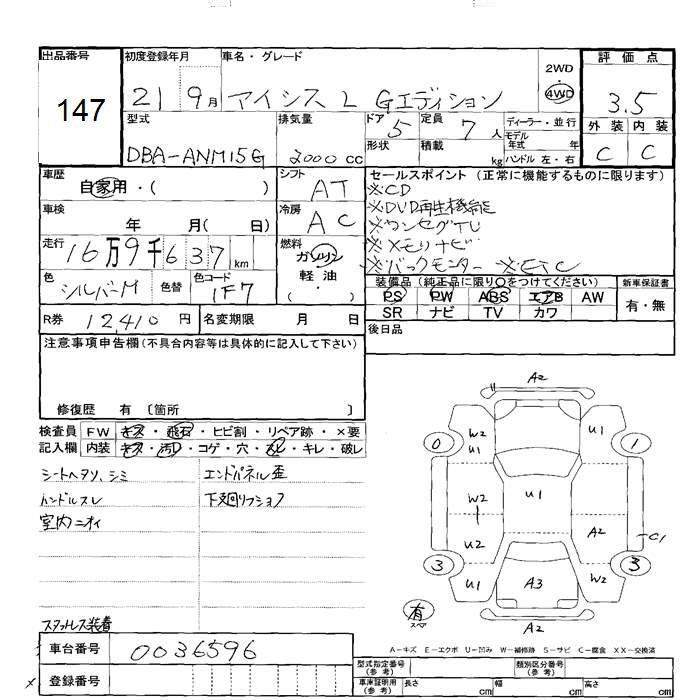 出品番号
147
初度登録年月
21 9月
車名・グレード
アイシス L Gエディション
2WD
・
4WD
評価点
3.5
外装 内装
C C
型式
DBA-ANM15G
排気量
2000 cc
ドア 5
定員 7 人
形状
積載 kg
ディーラー・並行
モデル
年式 年
ハンドル 左・右
車歴
自家用・( )
車検
年 月( 日)
走行
16万9千637 km
色
シルバーM
色替
色コード
1F7
シフト
AT
冷房
AC
燃料
ガソリン
軽油
( ・ )
セールスポイント (正常に機能するものに限ります)
※CD
※DVD再生機能
※ワンセグTV
※メモリナビ
※バックモニター ※ETC
装備品(純正品に限り○をつけてください)
PS PW ABS エアB AW
SR ナビ TV カワ
新車保証書
有・無
後日品
R券 12,410 円
名変期限 月 日
注意事項申告欄(不具合内容等は具体的に記入して下さい)
修復歴 有 〔箇所 〕
検査員 FW キズ・飛石・ヒビ割・リペア跡・×要
記入欄 内装 キズ・汚れ・コゲ・穴・スレ・キレ・破レ
シートヘタリ、シミ
ハンドルスレ
室内ニオイ
エンドパネル歪
下廻りフショク
スタットレス装着
A2
0 W2 U1 U1 1
W2 U1
U2 A2 C1
3 U1 A3 W2 3
有
スペア
A2
A-キズ E-エクボ U-凹み W-補修跡 S-サビ C-腐食 XX-交換済
車台番号
0036596
登録番号
型式指定番号
(参考)
類別区分番号
(参考)
車庫証明用
(参考)
長さ cm 幅 cm 高さ cm